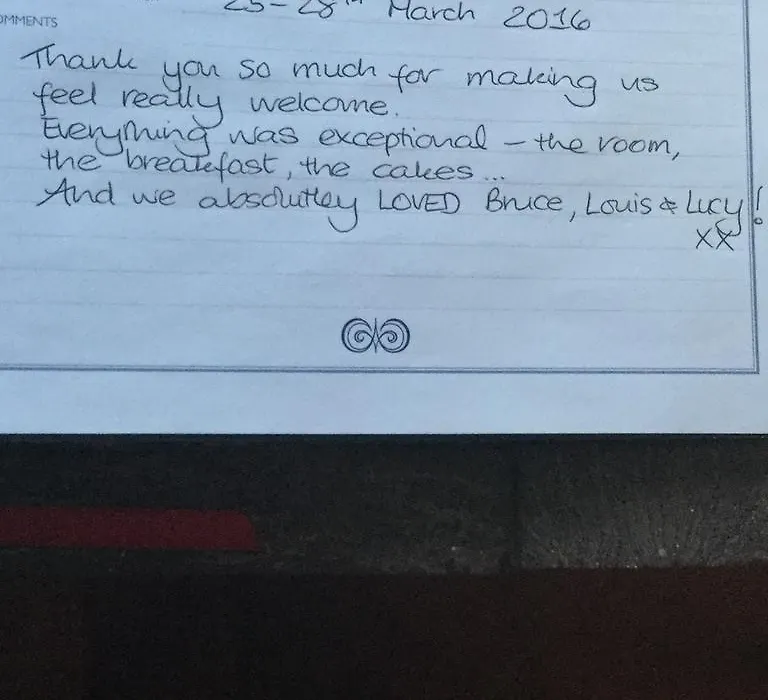 25-28th March 2016
OMMENTS
Thank you so much for making us
feel really welcome.
Everything was exceptional – the room,
the breakfast, the cakes...
And we absolutley LOVED Bruce, Louis & Lucy!
xx